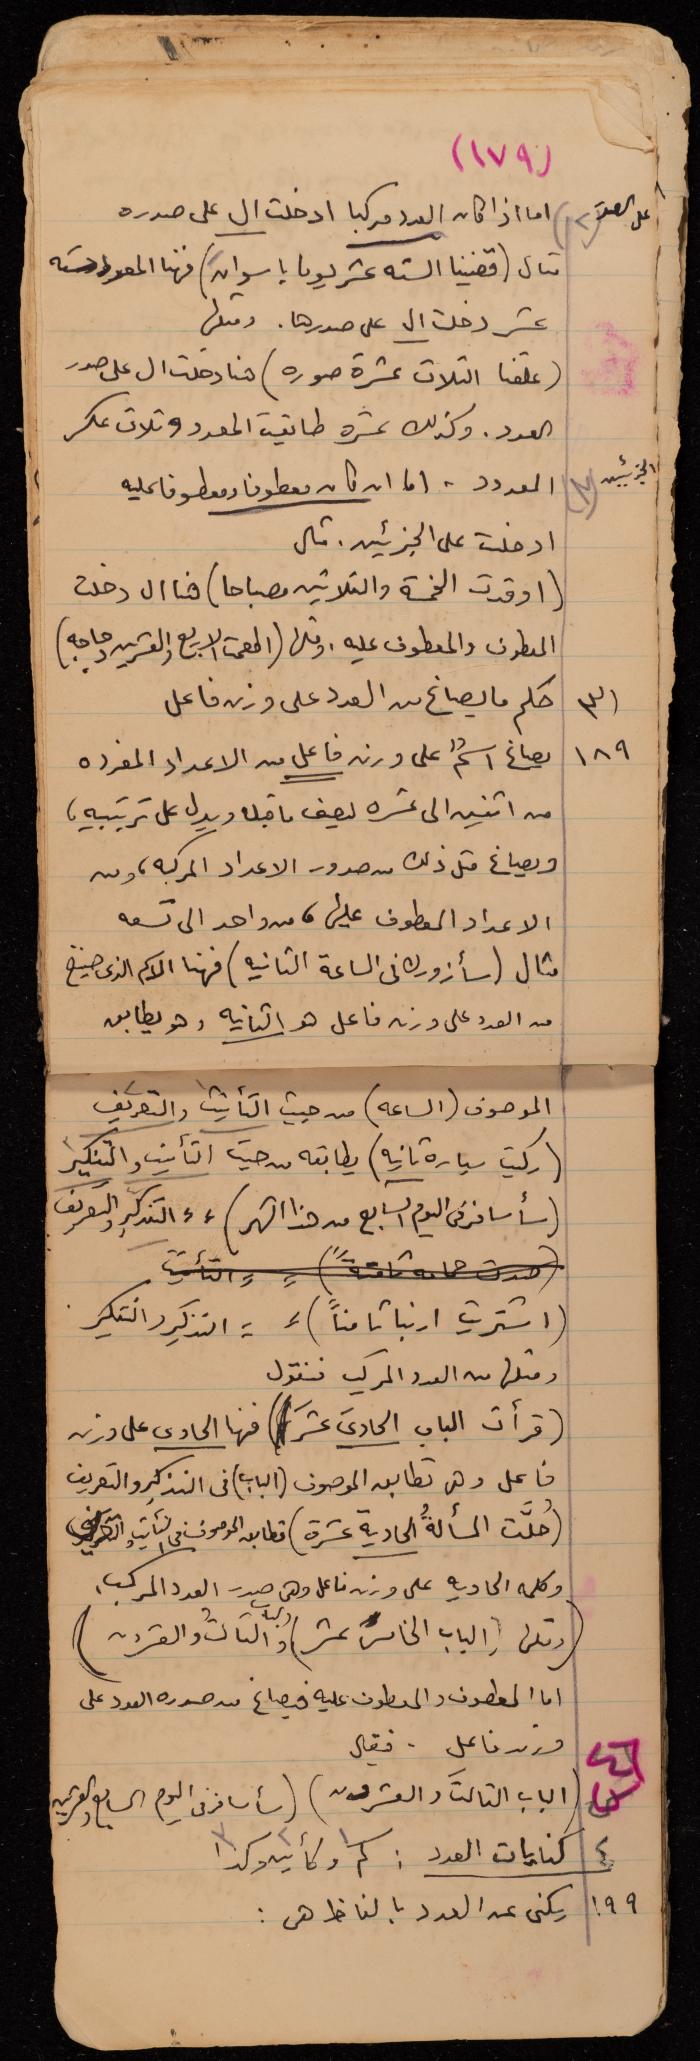 (١٧٩)
على الصدر (٢) اما اذا كان العدد مركبا ادخلت ال على صدره
مثال (قضينا الستة عشر يوما باسوان) فهنا المعدد ستة
عشر دخلت ال على صدرها . ومثلها
(علقنا الثلاث عشرة صوره) هنا دخلت ال على صدر
العدد . وكذلك عشرة طابقت المعدود وثلاث عكس
الجزئين (٣) المعدود . اما ان كان معطوفا ومعطوفا عليه
ادخلت على الجزئين . مثال
(اوقدت الخمسة والثلاثين مصباحا) هنا ال دخلت
المعطوف والمعطوف عليه . ومثلها (اطعمت الاربع والعشرين دجاجه)
(٣ حكم ما يصاغ من العدد على وزن فاعل
١٨٩ يصاغ اسمٌ على وزن فاعل من الاعداد المفرده
من اثنين الى عشره ليصف ما قبله ويدل على ترتيبه ،
ويصاغ مثل ذلك من صدور الاعداد المركبه ، ومن
الاعداد المعطوف عليها ، من واحد الى تسعه
مثال (سأزورك فى الساعة الثانيه) فهنا الاسم الذى صيغ
من العدد على وزن فاعل هو الثانيه وهو يطابق
الموصوف (الساعه) من حيث التأنيث والتعريف
(ركبت سيارة ثانيه) يطابقه من حيث التأنيث والتنكير
(سأسافر فى اليوم السابع من هذا الشهر) ء ء التذكير والتعريف
(اشتريت ارنبا ثامناً) ء = التذكير والتنكير
ومثلها من العدد المركب فنقول
(قرأت الباب الحادىَ عشرَ) فهنا الحادى على وزن
فاعل وهى تطابق الموصوف (الباب) فى التذكير والتعريف
(حُلَّت المسألةُ الحادية عشرة) تطابق الموصوف فى التأنيث والتعريف
وكلمه الحاديه على وزن فاعل وهى صدر العدد المركب .
(ومثلها (الباب الخامس عشر) والباب الثالث والعشرون)
اما المعطوف والمعطوف عليه فيصاغ من صدره العدد على
وزن فاعل . فيقال
(الباب الثالثَ والعشرون) (سأسافر فى اليوم السابع والعشرين
٤ كنايات العدد : كم ١ وكأين ٢ وكذا ٣
١٩٩ يكنى عن العدد بالفاظ هى :